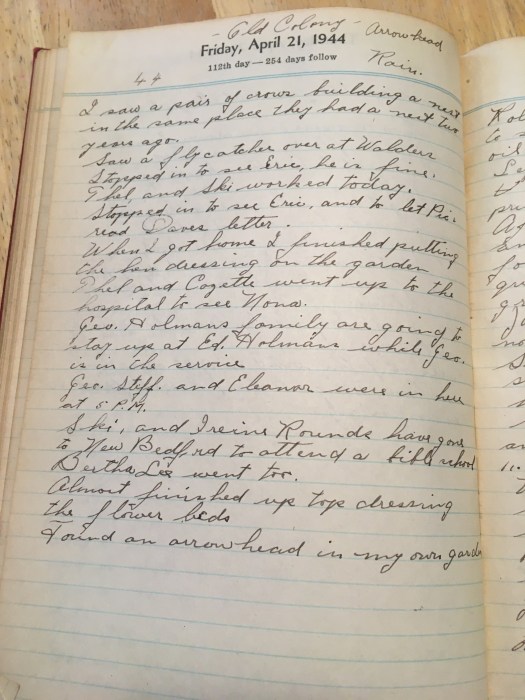 - Old Colony - Arrowhead
Friday, April 21, 1944
112th day — 254 days follow
Rain.
44
I saw a pair of crows building a nest
in the same place they had a nest two
years ago.
Saw a flycatcher over at Walders
Stopped in to see Eric, he is fine.
Thel, and Ski worked today.
Stopped in to see Eric, and to let
read Daves letter.
When I got home I finished putting
the hen dressing on the garden
Thel and Cozette went up to the
hospital to see Nona.
Geo. Holmans family are going to
stay up at Ed. Holmans while Geo.
is in the service
Geo. Stiff. and Eleanor were in here
at 5 P.M.
Ski, and Ireine Rounds have gone
to New Bedford to attend a bible school
Bertha Lee went too.
Almost finished up top dressing
the flower beds
Found an arrowhead in my own garden